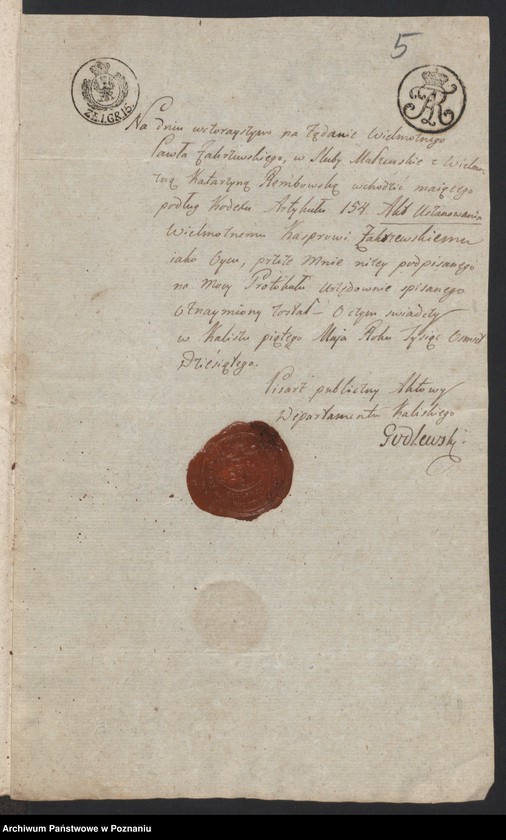 5
ZŁ.I.GR.15.
Na dniu wczorayszym na żądanie Wielmożnego
Pawła Zakrzewskiego, w Śluby Małżeńskie z Wielmo-
żną Katarzyną Rembowską wchodzić maiącego
podług Kodexu Artykułu 154. Akt Uszanowania
Wielmożnemu Kasprowi Zakrzewskiemu
iako Oycu, przeze Mnie niżey podpisanego
na Mocy Protokułu urzędownie spisanego
oznaymiony został – O czym świadczę
w Kaliszu piątego Maja Roku Tysiąc Osmset
Dziesiątego.
Pisarz publiczny Aktowy
Departamentu Kaliskiego
Godlewski.
Archiwum Państwowe w Poznaniu